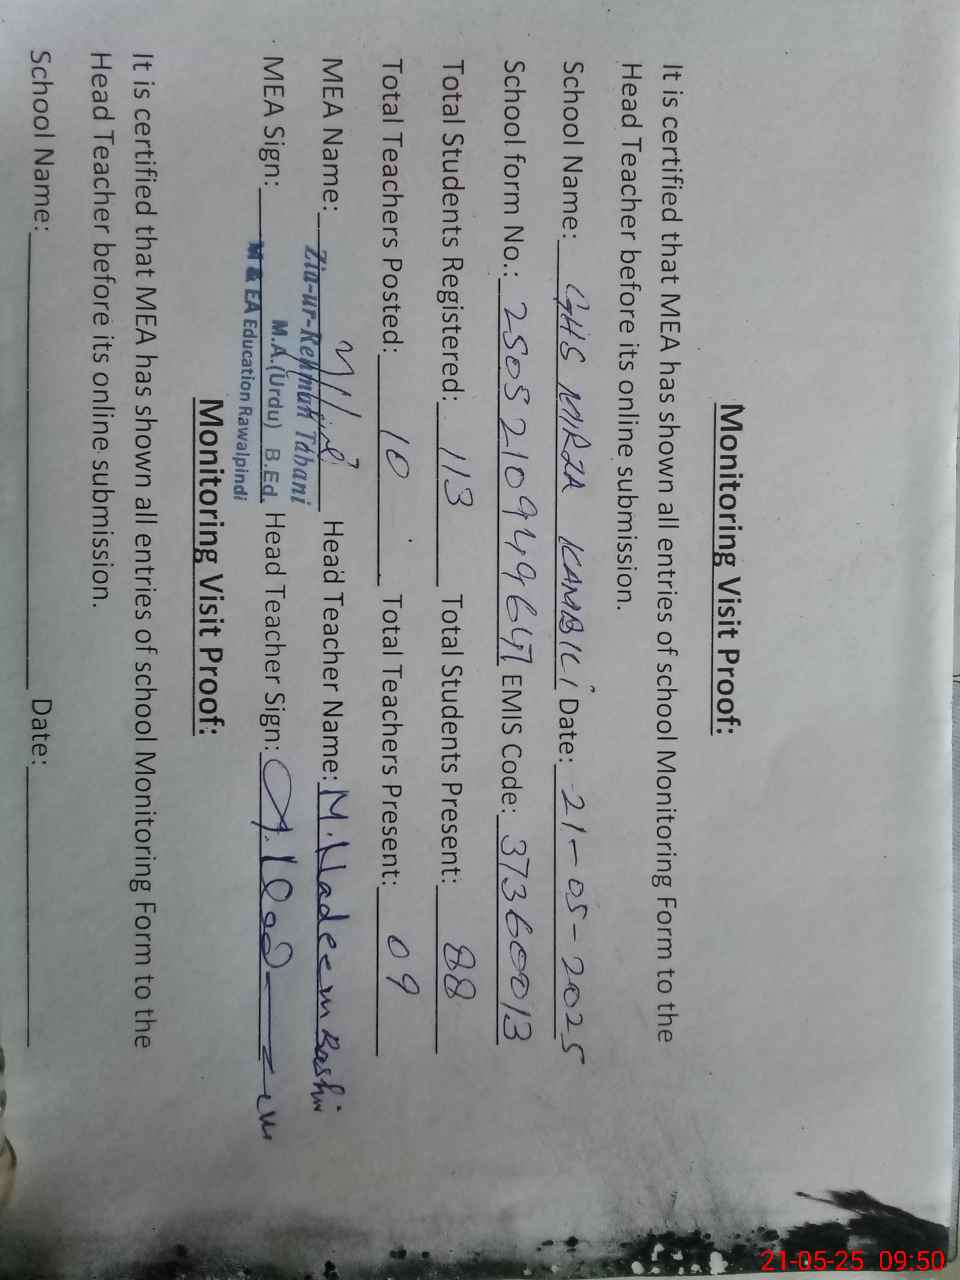 Monitoring Visit Proof:
It is certified that MEA has shown all entries of school Monitoring Form to the
Head Teacher before its online submission.
School Name: GHS MIRZA KAMBILI Date: 21-05-2025
School form No.: EMIS Code: 37360013
Total Students Registered: 113 Total Students Present: 88
Total Teachers Posted: 10 Total Teachers Present: 09
MEA Name: Zia-ur-Rehman Tahani Head Teacher Name: M. Nadeem Bashir
M.A.(Urdu) B.Ed.
MEA Sign: M & EA Education Rawalpindi Head Teacher Sign:
Monitoring Visit Proof:
It is certified that MEA has shown all entries of school Monitoring Form to the
Head Teacher before its online submission.
School Name: Date:
21-05-25 09:50